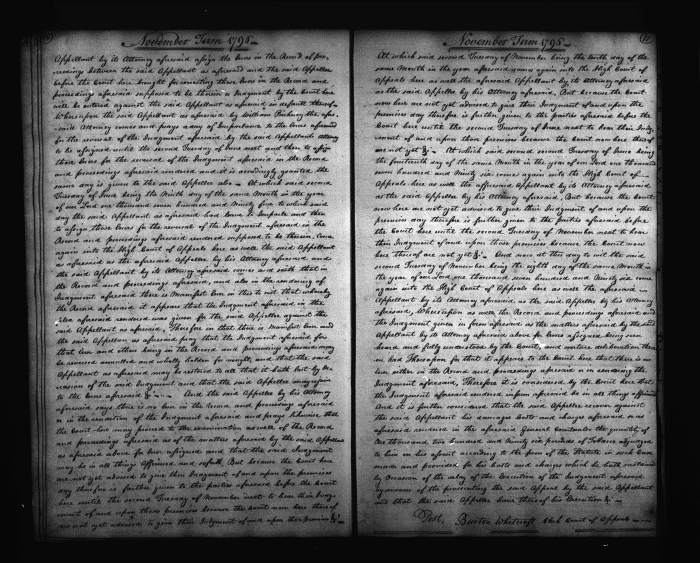 November Term 1795
Appellant by its Attorney aforesaid assign the Error in the Record of pro,
ceedings between the said Appellant as aforesaid and the said Appellee
before the Court here brought for correcting those Errors in the Record and
proceedings aforesaid supposed to be therein a Judgment by the Court here
will be entered against the said Appellant as aforesaid in default thereof.
Whereupon the said Appellant as aforesaid by William Pinkney the afore,
said Attorney comes and prays a day of Imparlance to the Errors aforesaid
for the reversal of the Judgment aforesaid by the said Appellant Attorney
to be assigned until the second Tuesday of June next and then to assign
those Errors for the reversal of the Judgment aforesaid in the Record
and proceedings aforesaid rendered and it is accordingly granted, the
same day is given to the said Appellee also — At which said second
Tuesday of June being the Ninth day of the same Month in the year
of our Lord one thousand seven hundred and Ninety five to which said
day the said Appellant as aforesaid had leave to Imparle and then
to assign those Errors for the reversal of the Judgment aforesaid in the
Record and proceedings aforesaid rendered supposed to be therein, Come
again into the High Court of Appeals here as well the said Appellant
as aforesaid as the aforesaid Appellee by his Attorney aforesaid and
the said Appellant by its Attorney aforesaid comes and saith that in
the Record and proceedings aforesaid, and also in the rendering of
Judgment aforesaid there is Manifest Error in this to wit that whereby
the Record aforesaid it appears that the Judgment aforesaid in the
Plea aforesaid rendered was given for the said Appellee against the
said Appellant as aforesaid, Therefore in that there is Manifest Error and
the said Appellant as aforesaid prays that the Judgment aforesaid for
that Error and others being in the Record and proceedings aforesaid may
be reversed annulled and wholly holden for nought, and that the said
Appellant as aforesaid may be restored to all that it hath lost by Oc
casion of the said Judgment and that the said Appellee may rejoin
to the Errors aforesaid &c — And the said Appellee by his Attorney
aforesaid says there is no Error in the Record and proceedings aforesaid
or in the rendition of the Judgment aforesaid and prays likewise that
the Court here may proceed to the examination as well of the Record
and proceedings aforesaid as of the matters aforesaid by the said Appellant
as aforesaid above for Error assigned and that the said Judgment
may be in all things Affirmed and so forth But because the Court here
are not yet advised to give their Judgment of and upon the premises
day therefore is further given to the parties aforesaid before the Court
here until the second Tuesday of November next to hear their Judge
ment of and upon those premises because the Court now here thereof
are not yet advised to give their Judgment of and upon the premises &c
November Term 1795
At which said second Tuesday of November being the tenth day of the
same Month in the year aforesaid come again into the High Court of
Appeals here as well the aforesaid Appellant by its Attorney aforesaid
as the said Appellee by his Attorney aforesaid. But because the Court
now here are not yet advised to give their Judgment of and upon the
premises day therefore is further given to the parties aforesaid before the
Court here until the second Tuesday of June next to hear their Judg,
ment of and upon those premises because the Court now here thereof
are not yet &c — At which said second Tuesday of June being
the fourteenth day of the same Month in the year of our Lord one thousand
seven hundred and Ninety six come again into the High Court of
Appeals here as well the aforesaid Appellant by its Attorney aforesaid
as the said Appellee by his Attorney aforesaid. But because the Court
now here are not yet advised to give their Judgment of and upon the
premises day therefore is further given to the parties aforesaid before
the Court here until the second Tuesday of November next to hear
their Judgment of and upon those premises because the Court now
here thereof are not yet &c — And now at this day to wit the said
second Tuesday of November being the eighth day of the same Month in
the year of our Lord one thousand seven hundred and Ninety six come
again into the High Court of Appeals here as well the aforesaid
Appellant by its Attorney aforesaid as the said Appellee by his Attorney
aforesaid, Whereupon as well the Record and proceedings aforesaid and
the Judgment given in form aforesaid as the matters aforesaid by the said
Appellant by its Attorney aforesaid above for Errors assigned being seen,
heard and fully understood by the Court, and mature deliberation there
on had Thereupon for that it appears to the Court here that there is no
Error either in the Record and proceedings aforesaid or in rendering the
Judgment aforesaid, Therefore it is considered by the Court here that
the Judgment aforesaid rendered in form aforesaid be in all things affirmed
And it is further considered that the said Appellee recover against
the said Appellant his damages Costs and charges aforesaid as a
foresaid rendered in the aforesaid General Court also the quantity of
One thousand two Hundred and Ninety six pounds of Tobacco adjudged
to him on his assent according to the form of the Statute in such Case
made and provided for his Costs and charges which he hath sustained
by Occasion of the delay of the Execution of the Judgment aforesaid
by means of the prosecuting the said Appeal by the said Appellant
and that the said Appellee have thereof his Execution &c —
Test. Burton Whetcroft Clerk Court of Appeals